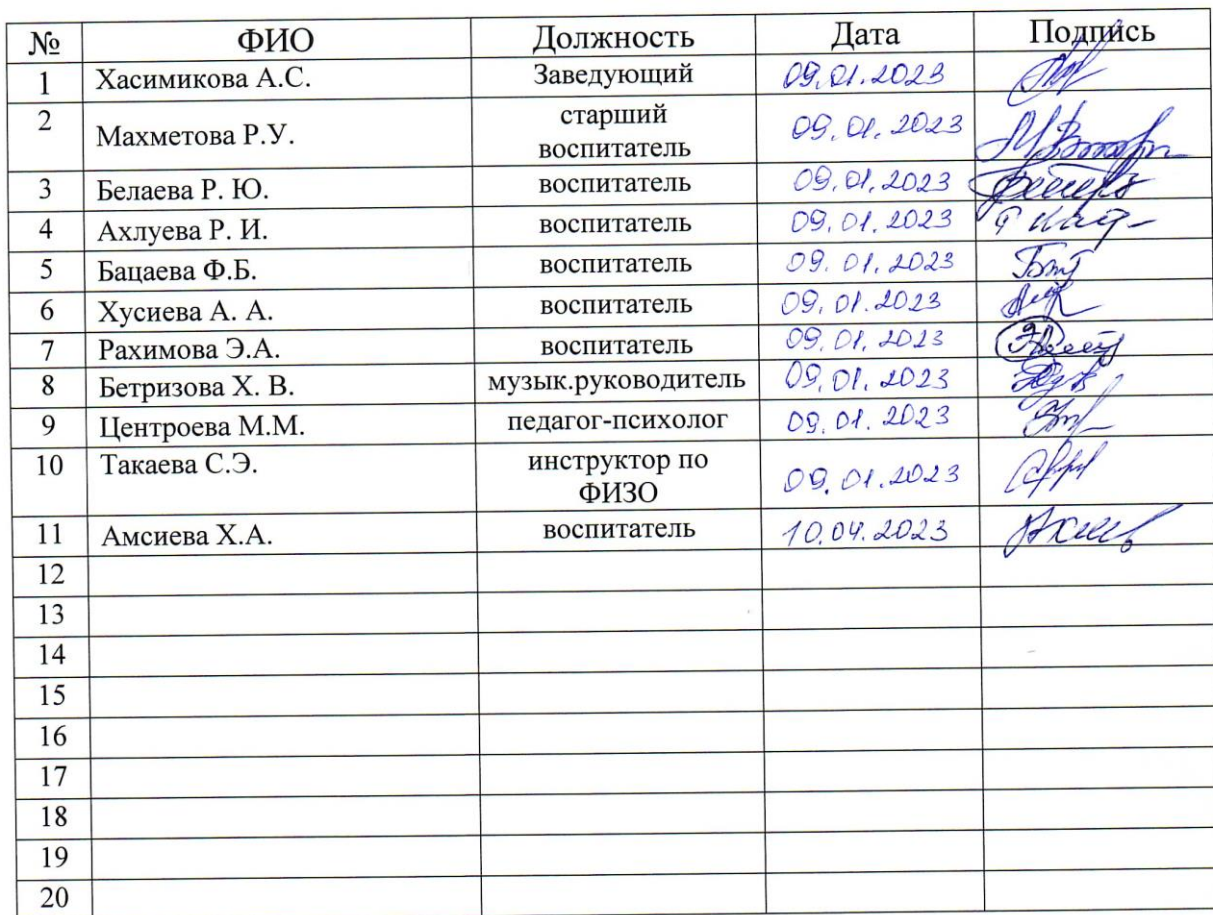 № ФИО Должность Дата Подпись
1 Хасимикова А.С. Заведующий 09.01.2023
2 Махметова Р.У. старший воспитатель 09.01.2023
3 Белаева Р. Ю. воспитатель 09.01.2023
4 Ахлуева Р. И. воспитатель 09.01.2023
5 Бацаева Ф.Б. воспитатель 09.01.2023
6 Хусиева А. А. воспитатель 09.01.2023
7 Рахимова Э.А. воспитатель 09.01.2023
8 Бетризова Х. В. музык.руководитель 09.01.2023
9 Центроева М.М. педагог-психолог 09.01.2023
10 Такаева С.Э. инструктор по ФИЗО 09.01.2023
11 Амсиева Х.А. воспитатель 10.04.2023
12
13
14
15
16
17
18
19
20